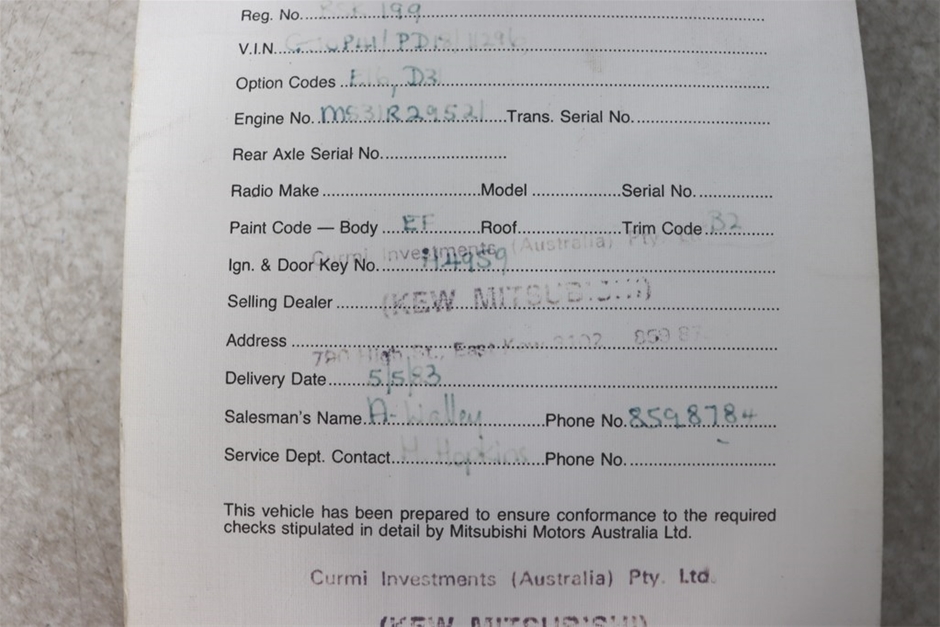 Reg. No. 199
V.I.N.
Option Codes D3
Engine No. Trans. Serial No.
Rear Axle Serial No.
Radio Make Model Serial No.
Paint Code — Body EF Roof Trim Code B2
Curmi Investments (Australia) Pty.
Ign. & Door Key No. H4959
Selling Dealer (KEW MITSUBISHI)
Address
790 High St., East Kew 3102 859
Delivery Date 5/5/83
Salesman's Name A. Walley Phone No. 8598784
Service Dept. Contact H. Hopkins Phone No.
This vehicle has been prepared to ensure conformance to the required
checks stipulated in detail by Mitsubishi Motors Australia Ltd.
Curmi Investments (Australia) Pty. Ltd.
(KEW MITSUBISHI)